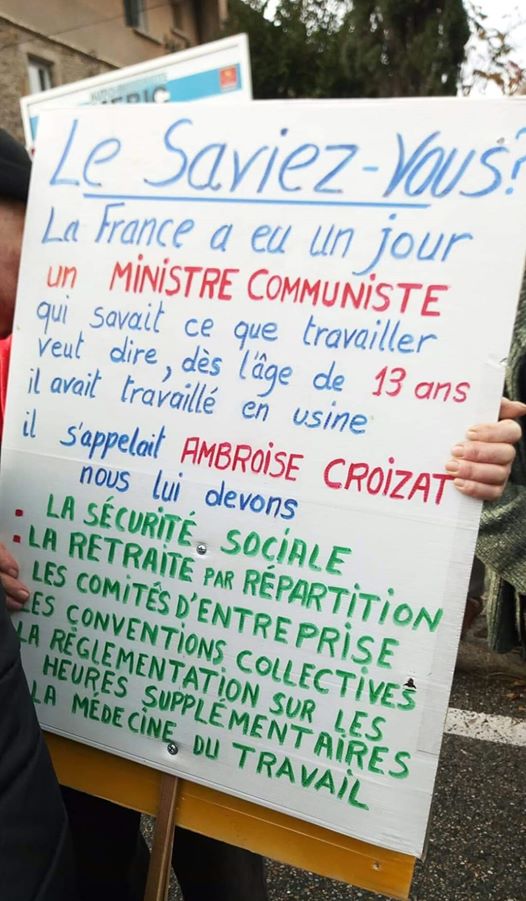 Le Saviez-Vous?
La France a eu un jour
un MINISTRE COMMUNISTE
qui savait ce que travailler
veut dire, dès l'âge de 13 ans
il avait travaillé en usine
il s'appelait AMBROISE CROIZAT
nous lui devons
LA SÉCURITÉ SOCIALE
LA RETRAITE PAR RÉPARTITION
LES COMITÉS D'ENTREPRISE
LES CONVENTIONS COLLECTIVES
LA RÉGLEMENTATION SUR LES
HEURES SUPPLÉMENTAIRES
LA MÉDECINE DU TRAVAIL